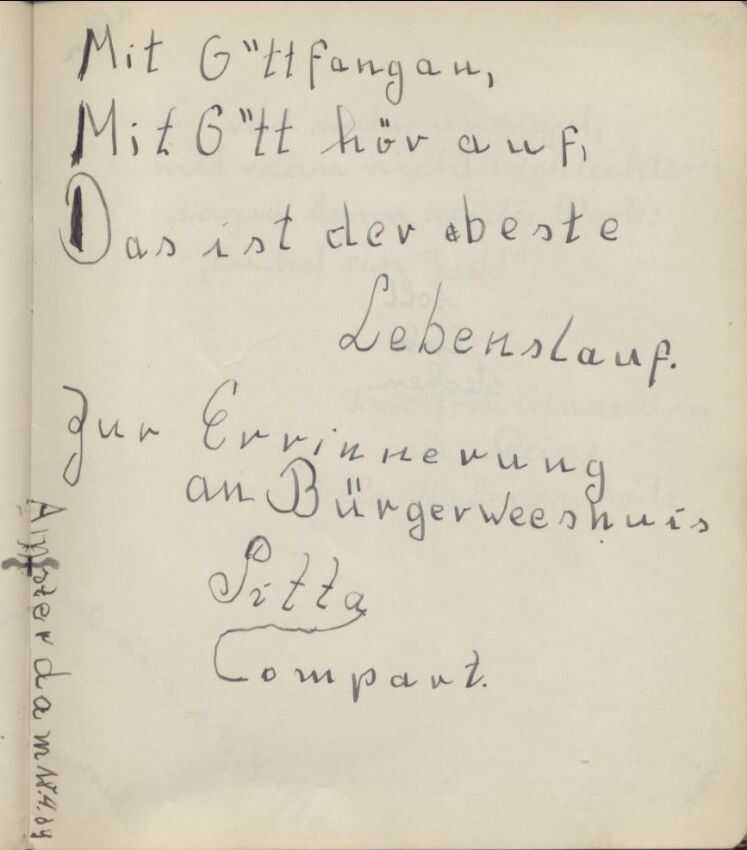 Mit G"tt fang an,
Mit G"tt hör auf,
Das ist der beste
Lebenslauf.
Zur Errinnerung
an Bürgerweeshuis
Compart.
Amsterdam